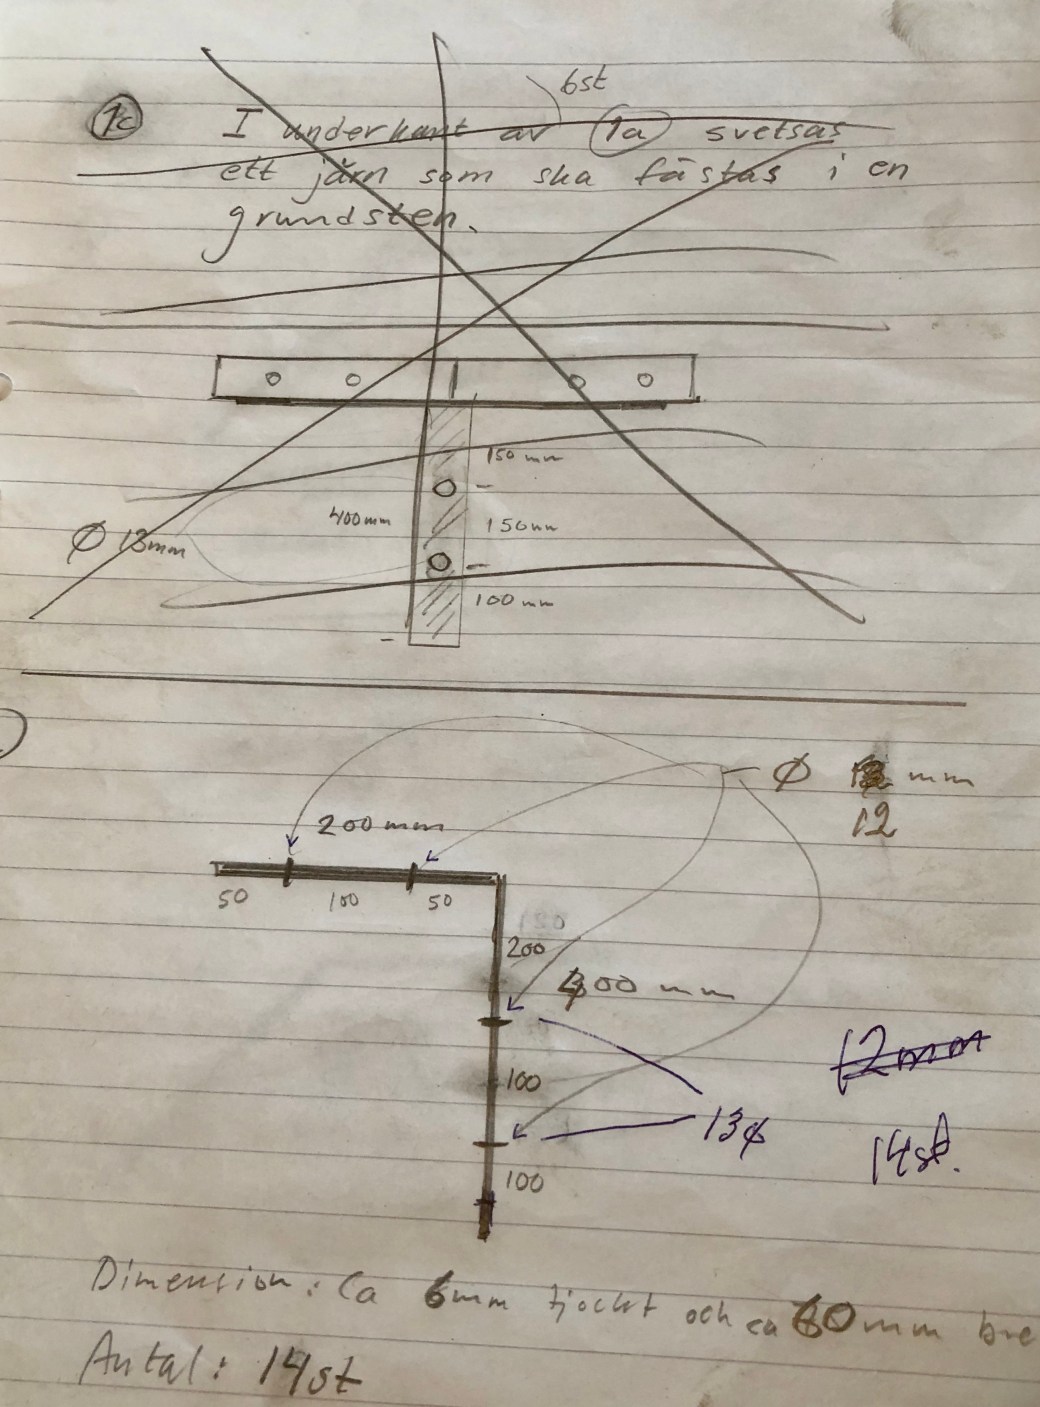 1c I underkant av 1a svetsas
6st
ett järn som ska fästas i en
grundsten.
150 mm
400mm
150mm
Ø 13mm
100 mm
Ø mm
12
200mm
50 100 50
200
400 mm
100
12mm
13ø
14st.
100
Dimension: Ca 6mm tjockt och ca 60mm bre
Antal: 14st